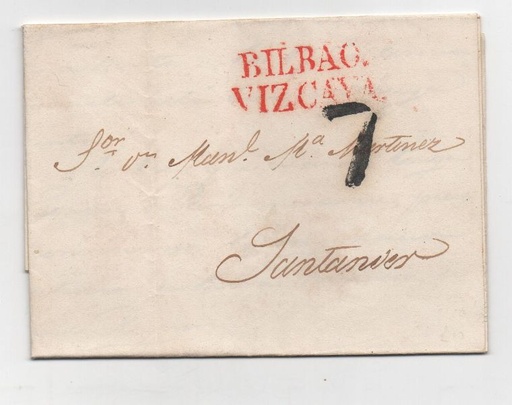 BILBAO.
VIZCAYA.
7
S.or Dn Man.l M.a Martinez
Santander